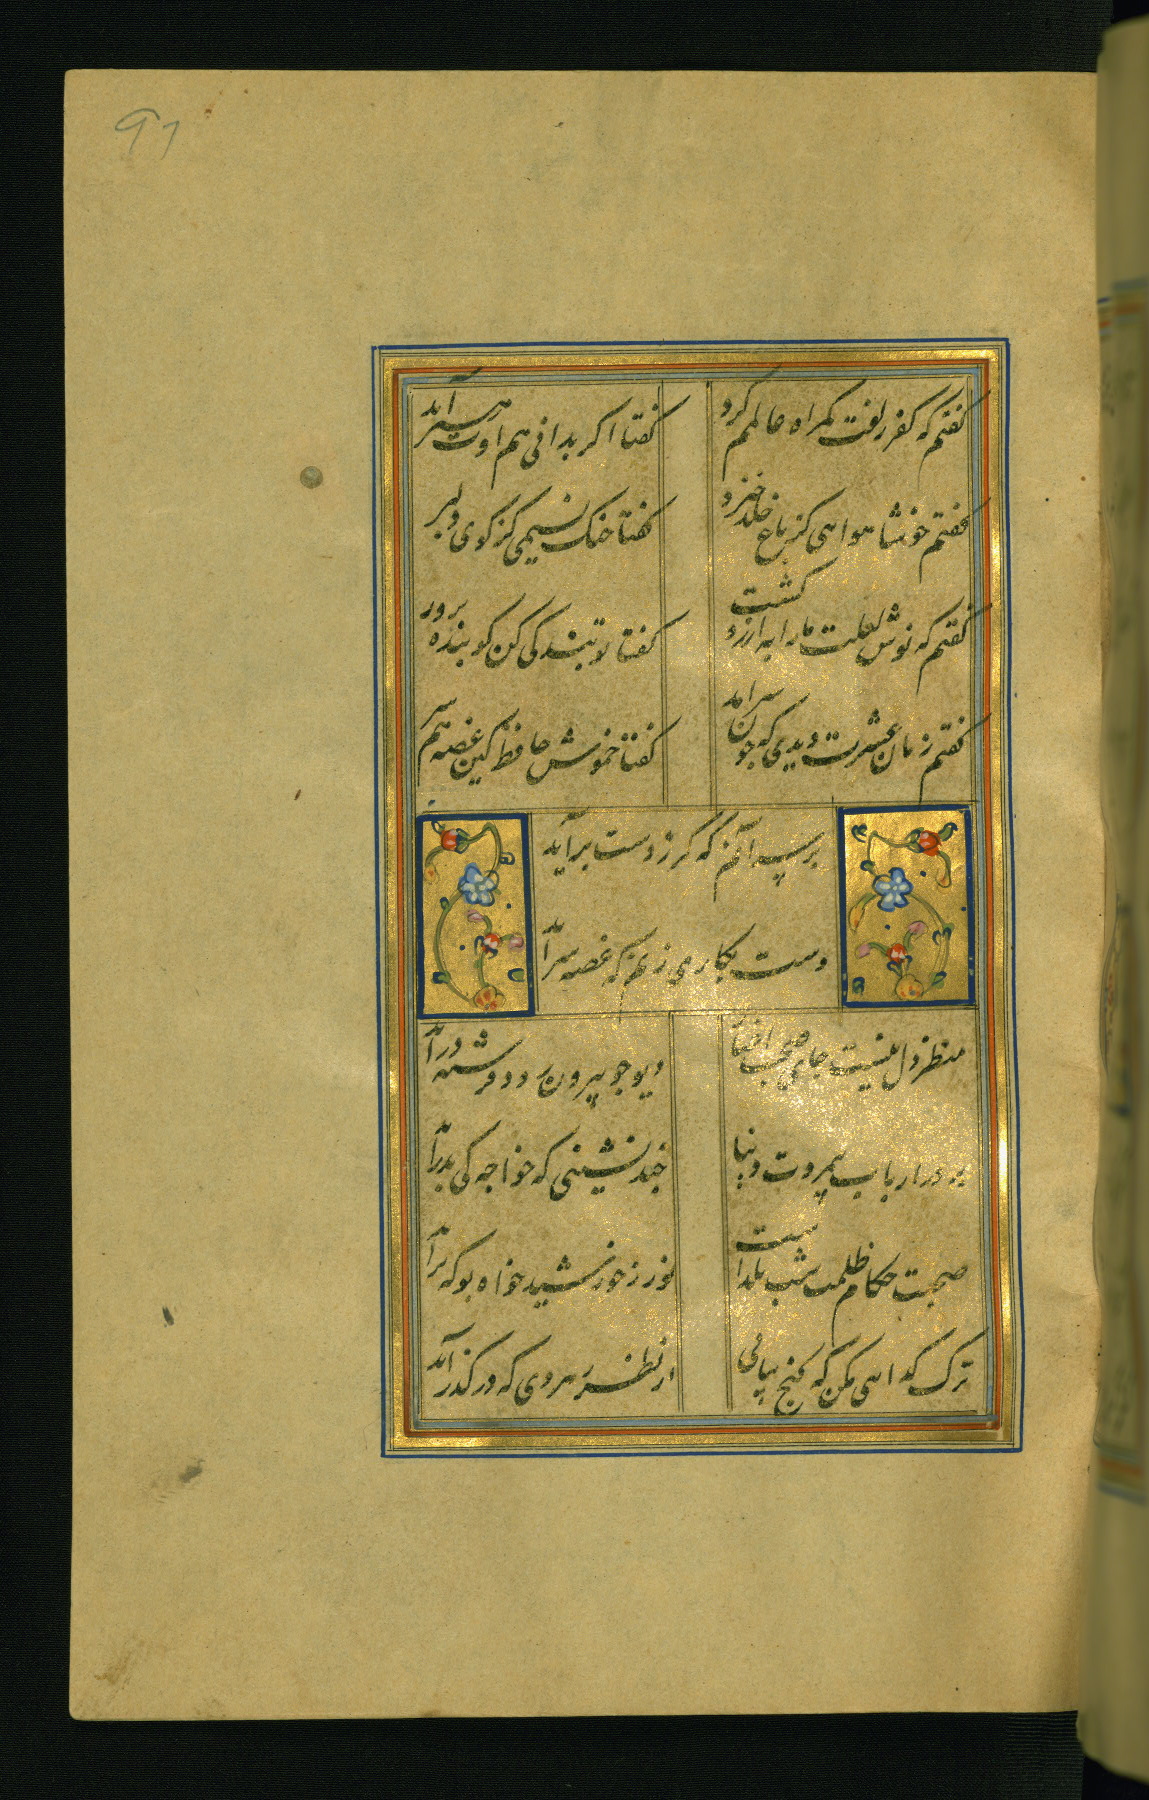 97
گفتم که کفر زلفت گمراه عالمم کرد
گفتا اگر بدانی هم اوت رهبر آید
گفتم خوشا هوایی کز باغ خلد خیزد
گفتا خنک نسیمی کز کوی دلبر
گفتم که نوش لعلت ما را به آرزو کشت
گفتا تو بندگی کن کو بنده پرور
گفتم زمان عشرت دیدی که چون سرآمد
گفتا خموش حافظ کین غصه هم سر
بر سر آنم که گر ز دست برآید
دست بکاری زنم که غصه سرآ
منظر دل نیست جای صحبت اغیا
دیو چو بیرون رود فرشته درآ
بر در ارباب بیمروت دنیا
چند نشینی که خواجه کی بدرآ
صحبت حکام ظلمت شب یلداست
نور ز خورشید خواه بو که برآ
ترک گدایی مکن که گنج بیابی
از نظر رهروی که در گذر آید